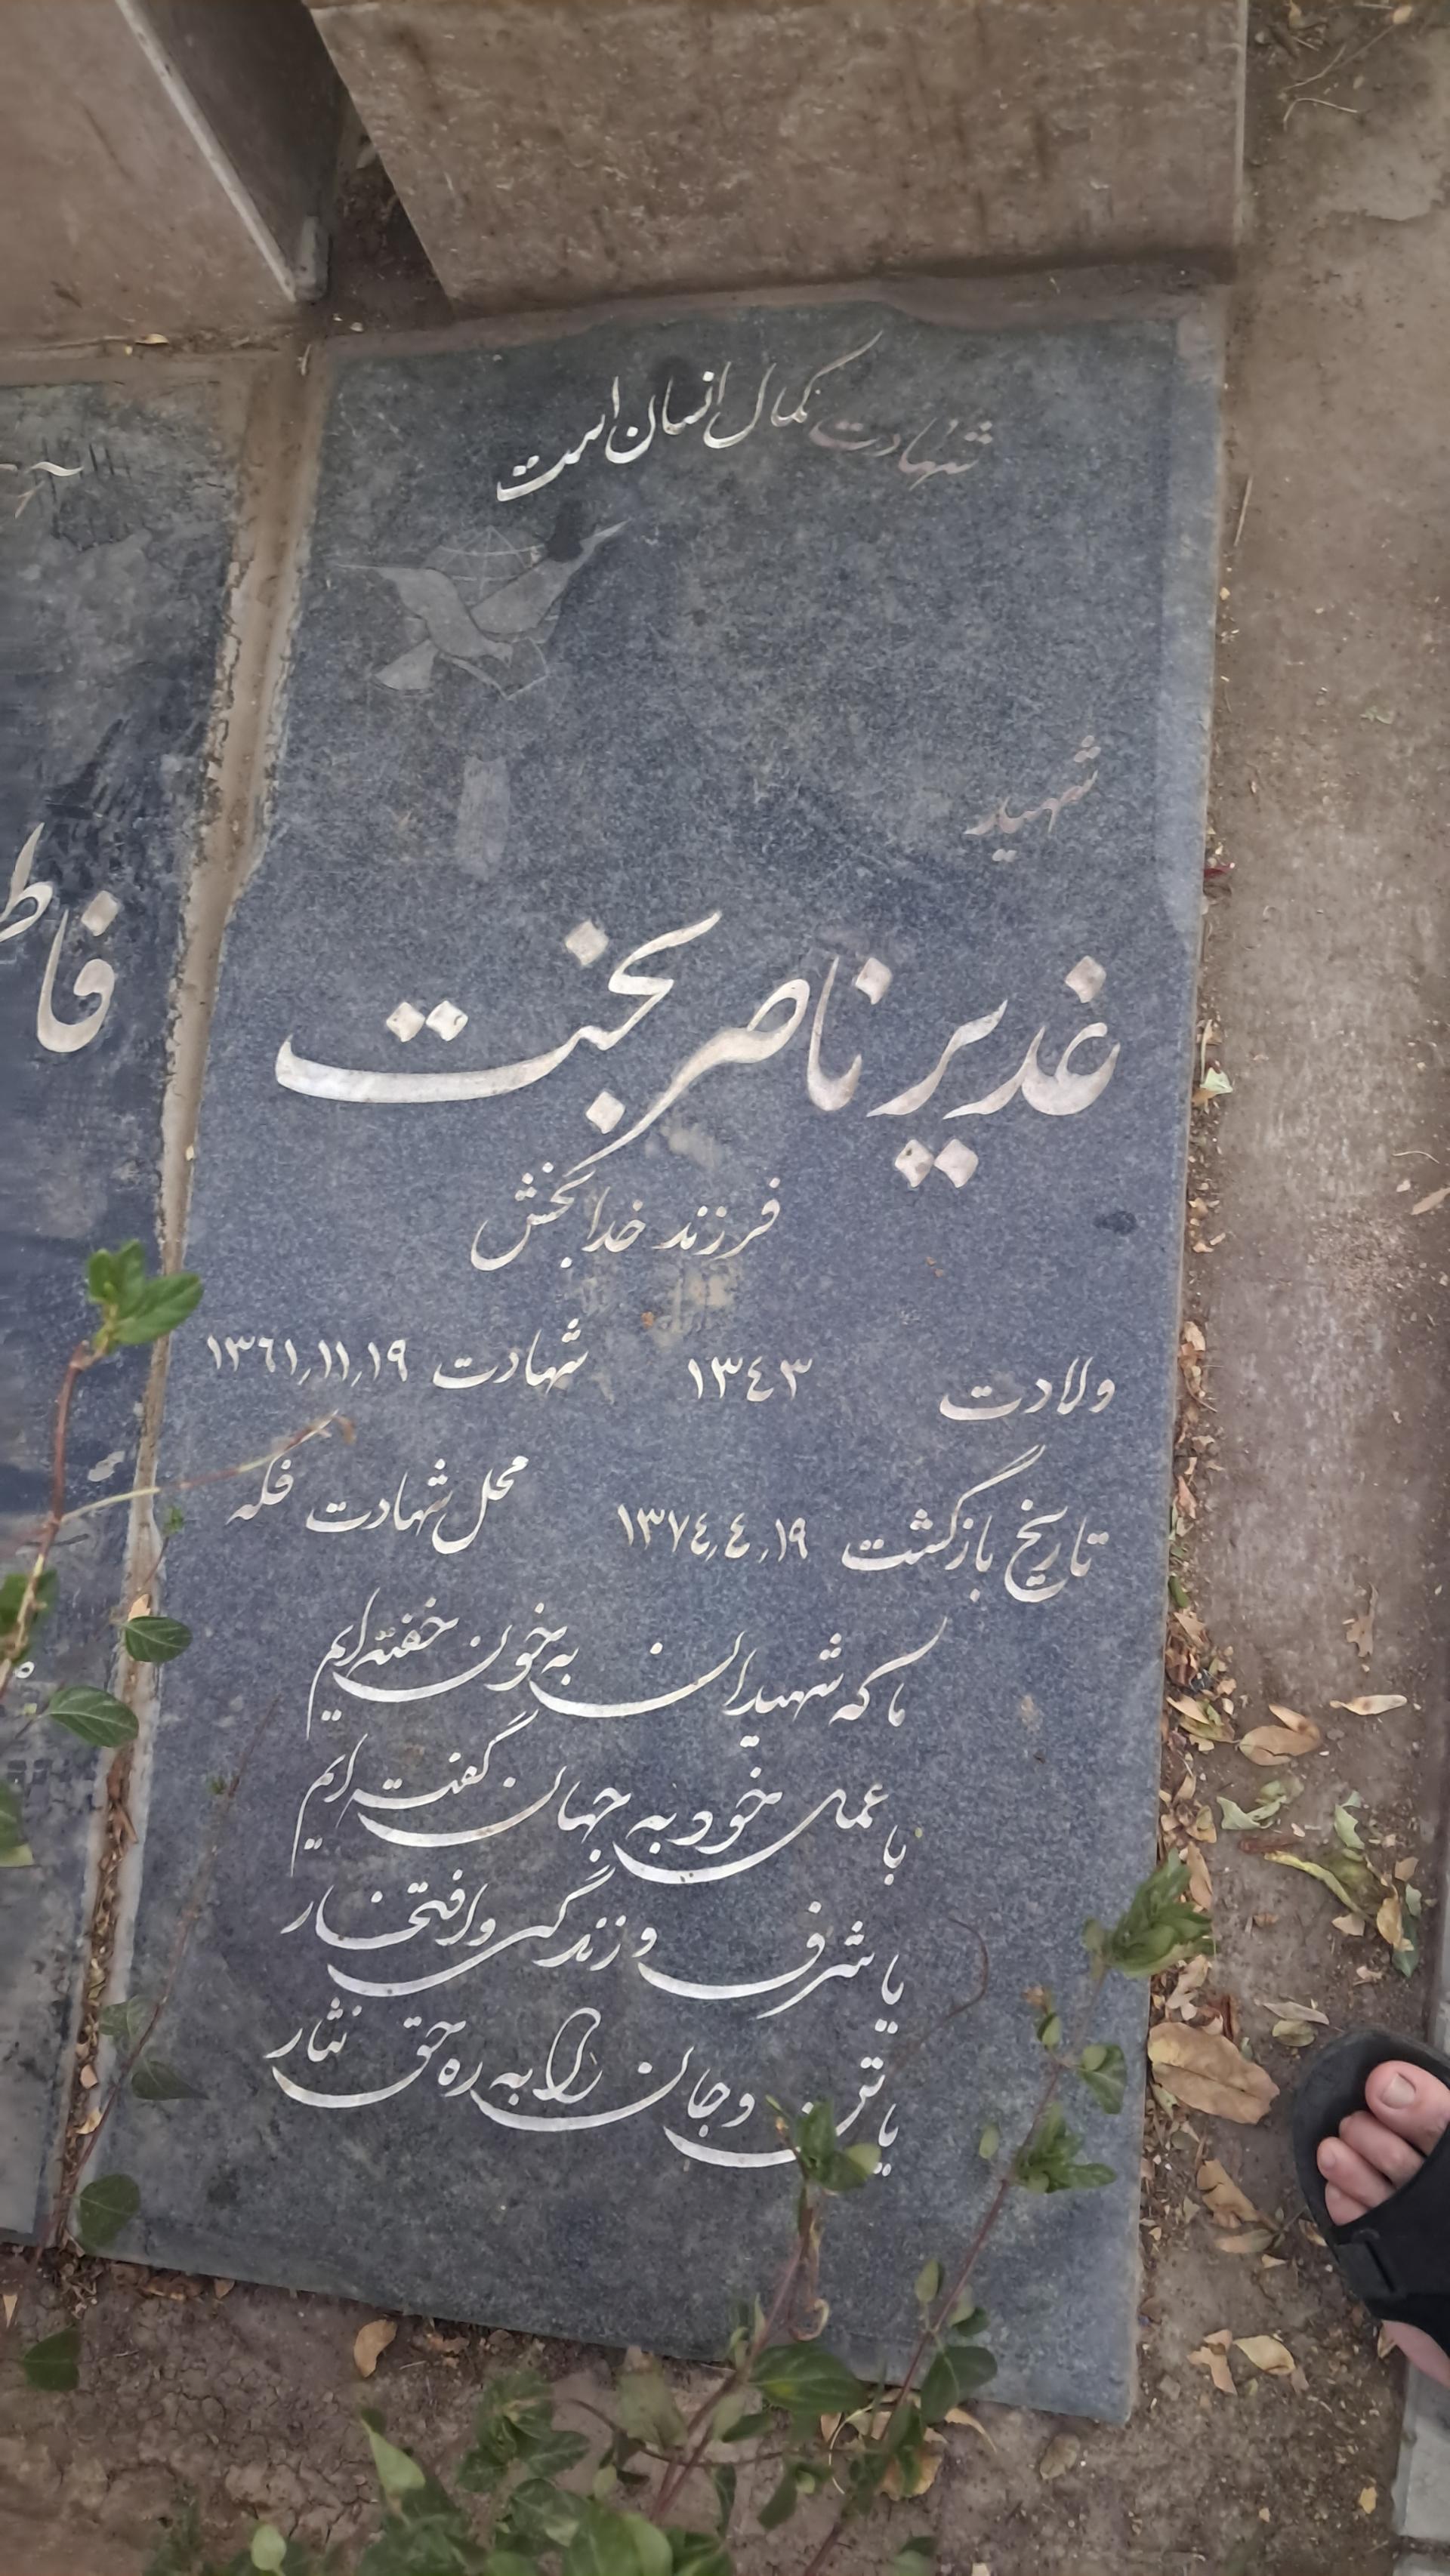 شهادت کمال انسان است
شهید
غدیر ناصر بخت
فرزند خدابخش
ولادت ۱۳۴۳ شهادت ۱۳۶۱٫۱۱٫۱۹
تاریخ بازگشت ۱۳۷۴٫۴٫۱۹ محل شهادت فکه
ما که شهیدان به خون خفته ایم
با عمل خود به جهان گفته ایم
یا شرف و زندگی و افتخار
یا تن و جان را به ره حق نثار
فاط